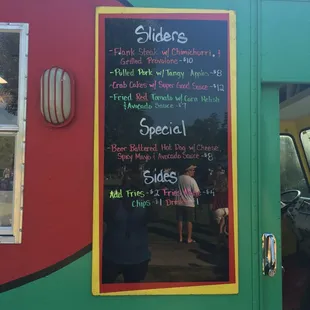 Sliders
-Flank Steak w/ Chimichurri &
Grilled Provolone -$10
-Pulled Pork w/ Tangy Apples -$8
-Crab Cakes w/ Super Good Sauce -$12
-Fried Red Tomato w/ Corn Relish
& Avocado Sauce -$7
Special
-Beer Battered Hot Dog w/ Cheese,
Spicy Mayo & Avocado Sauce -$8
Sides
Add Fries -$2 Fries -$4
Chips -$1 Drink